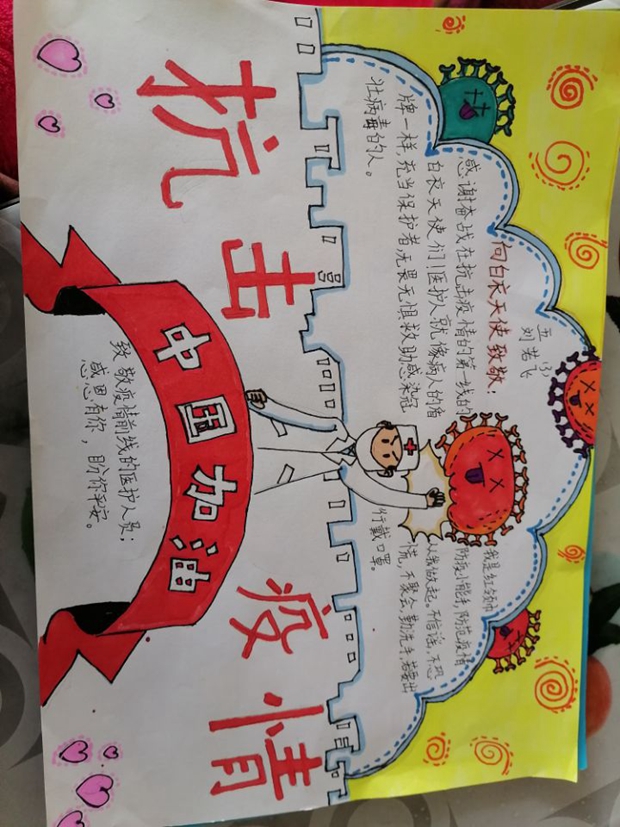 抗击疫情
刘若飞
向白衣天使致敬：
感谢奋战在抗击疫情的第一线的
白衣天使们医护人就像病人的盾
牌一样,充当保护者,无畏无惧救助感染冠
壮病毒的人。
我是红领巾
防疫小能手,防范疫情
从我做起。不信谣,不恐
慌,不聚会,勤洗手,若要出
行戴口罩。
中国加油
致敬疫情前线的医护人员：
感恩有你，盼你平安。